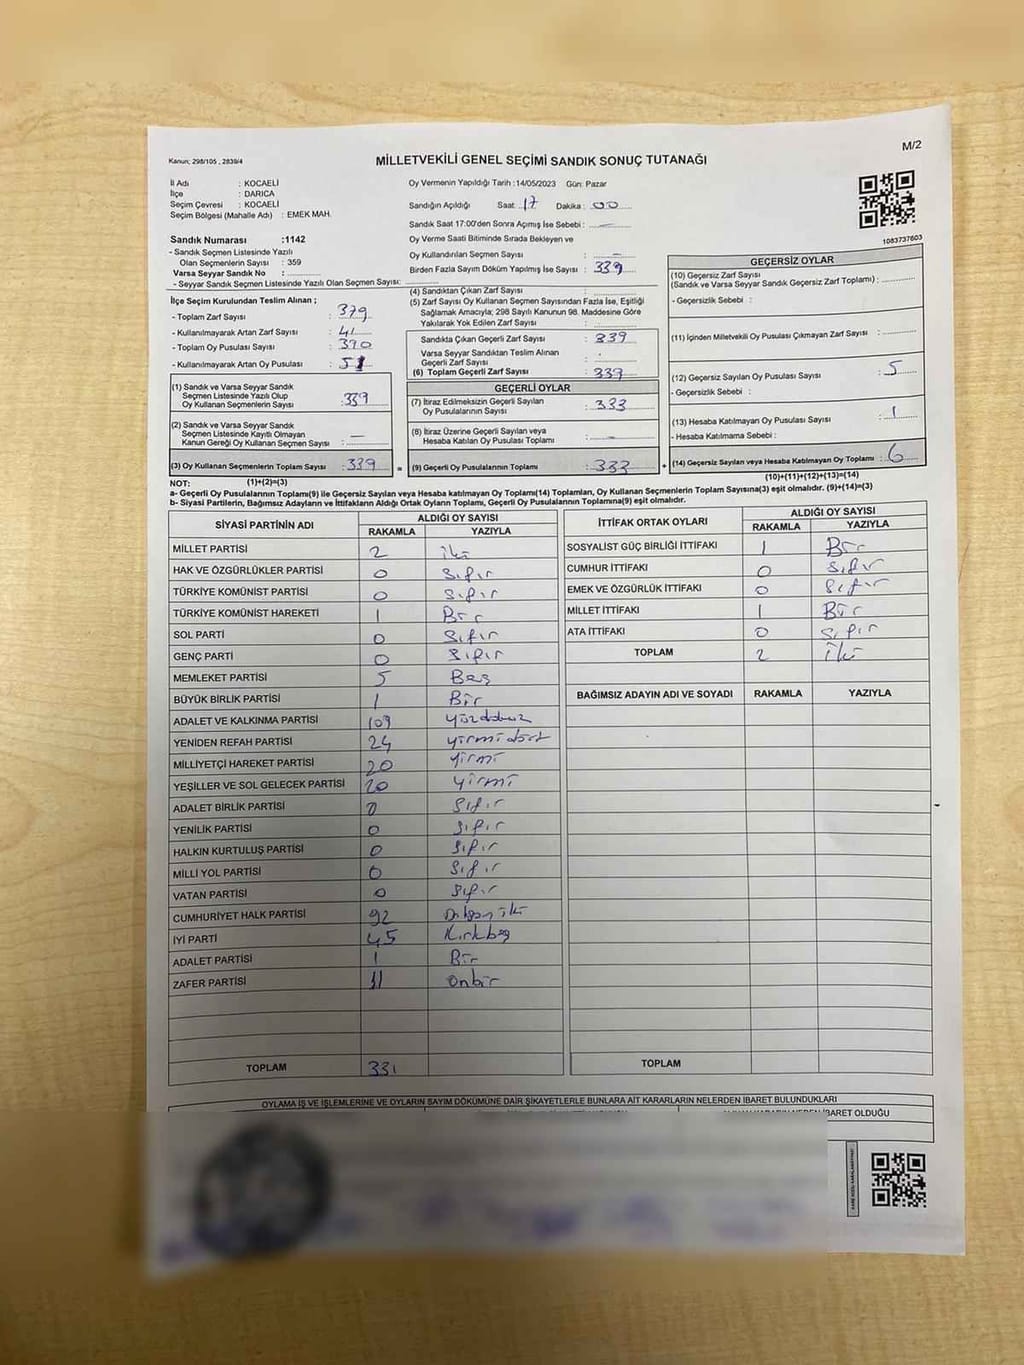 Kanun; 298/105 , 2839/4
MİLLETVEKİLİ GENEL SEÇİMİ SANDIK SONUÇ TUTANAĞI
M/2
İl Adı : KOCAELİ
İlçe : DARICA
Seçim Çevresi : KOCAELİ
Seçim Bölgesi (Mahalle Adı) : EMEK MAH.
Sandık Numarası :1142
- Sandık Seçmen Listesinde Yazılı
Olan Seçmenlerin Sayısı : 359
Varsa Seyyar Sandık No :
- Seyyar Sandık Seçmen Listesinde Yazılı Olan Seçmen Sayısı:
Oy Vermenin Yapıldığı Tarih :14/05/2023 Gün: Pazar
Sandığın Açıldığı Saat: 17 Dakika: 00
Sandık Saat 17:00'den Sonra Açımış İse Sebebi : —
Oy Verme Saati Bitiminde Sırada Bekleyen ve
Oy Kullandırılan Seçmen Sayısı : —
Birden Fazla Sayım Döküm Yapılmış İse Sayısı : 339
1083737603
İlçe Seçim Kurulundan Teslim Alınan ;
- Toplam Zarf Sayısı : 379
- Kullanılmayarak Artan Zarf Sayısı : 41
- Toplam Oy Pusulası Sayısı : 390
- Kullanılmayarak Artan Oy Pusulası : 51
(1) Sandık ve Varsa Seyyar Sandık
Seçmen Listesinde Yazılı Olup
Oy Kullanan Seçmenlerin Sayısı : 339
(2) Sandık ve Varsa Seyyar Sandık
Seçmen Listesinde Kayıtlı Olmayan
Kanun Gereği Oy Kullanan Seçmen Sayısı : —
(3) Oy Kullanan Seçmenlerin Toplam Sayısı : 339
(4) Sandıktan Çıkan Zarf Sayısı :
(5) Zarf Sayısı Oy Kullanan Seçmen Sayısından Fazla İse, Eşitliği
Sağlamak Amacıyla; 298 Sayılı Kanunun 98. Maddesine Göre
Yakılarak Yok Edilen Zarf Sayısı :
Sandıkta Çıkan Geçerli Zarf Sayısı : 339
Varsa Seyyar Sandıktan Teslim Alınan
Geçerli Zarf Sayısı :
(6) Toplam Geçerli Zarf Sayısı : 339
GEÇERLİ OYLAR
(7) İtiraz Edilmeksizin Geçerli Sayılan
Oy Pusulalarının Sayısı : 333
(8) İtiraz Üzerine Geçerli Sayılan veya
Hesaba Katılan Oy Pusulası Toplamı : —
= (9) Geçerli Oy Pusulalarının Toplamı : 333
GEÇERSİZ OYLAR
(10) Geçersiz Zarf Sayısı
(Sandık ve Varsa Seyyar Sandık Geçersiz Zarf Toplamı) :
- Geçersizlik Sebebi :
(11) İçinden Milletvekili Oy Pusulası Çıkmayan Zarf Sayısı :
(12) Geçersiz Sayılan Oy Pusulası Sayısı : 5
- Geçersizlik Sebebi :
(13) Hesaba Katılmayan Oy Pusulası Sayısı : 1
- Hesaba Katılmama Sebebi :
+ (14) Geçersiz Sayılan veya Hesaba Katılmayan Oy Toplamı : 6
NOT: (1)+(2)=(3) (10)+(11)+(12)+(13)=(14)
a- Geçerli Oy Pusulalarının Toplamı(9) ile Geçersiz Sayılan veya Hesaba katılmayan Oy Toplamı(14) Toplamları, Oy Kullanan Seçmenlerin Toplam Sayısına(3) eşit olmalıdır. (9)+(14)=(3)
b- Siyasi Partilerin, Bağımsız Adayların ve İttifakların Aldığı Ortak Oyların Toplamı, Geçerli Oy Pusulalarının Toplamına(9) eşit olmalıdır.
SİYASİ PARTİNİN ADI ALDIĞI OY SAYISI
RAKAMLA YAZIYLA
MİLLET PARTİSİ 2 iki
HAK VE ÖZGÜRLÜKLER PARTİSİ 0 Sıfır
TÜRKİYE KOMÜNİST PARTİSİ 0 Sıfır
TÜRKİYE KOMÜNİST HAREKETİ 1 Bir
SOL PARTİ 0 Sıfır
GENÇ PARTİ 0 Sıfır
MEMLEKET PARTİSİ 5 Beş
BÜYÜK BİRLİK PARTİSİ 1 Bir
ADALET VE KALKINMA PARTİSİ 109 yüzdokuz
YENİDEN REFAH PARTİSİ 24 yirmidört
MİLLİYETÇİ HAREKET PARTİSİ 20 yirmi
YEŞİLLER VE SOL GELECEK PARTİSİ 20 yirmi
ADALET BİRLİK PARTİSİ 0 Sıfır
YENİLİK PARTİSİ 0 Sıfır
HALKIN KURTULUŞ PARTİSİ 0 Sıfır
MİLLİ YOL PARTİSİ 0 Sıfır
VATAN PARTİSİ 0 Sıfır
CUMHURİYET HALK PARTİSİ 92 Doksaniki
İYİ PARTİ 45 Kırkbeş
ADALET PARTİSİ 1 Bir
ZAFER PARTİSİ 11 onbir
TOPLAM 331
İTTİFAK ORTAK OYLARI ALDIĞI OY SAYISI
RAKAMLA YAZIYLA
SOSYALİST GÜÇ BİRLİĞİ İTTİFAKI 1 Bir
CUMHUR İTTİFAKI 0 Sıfır
EMEK VE ÖZGÜRLÜK İTTİFAKI 0 Sıfır
MİLLET İTTİFAKI 1 Bir
ATA İTTİFAKI 0 Sıfır
TOPLAM 2 iki
BAĞIMSIZ ADAYIN ADI VE SOYADI RAKAMLA YAZIYLA
TOPLAM
OYLAMA İŞ VE İŞLEMLERİNE VE OYLARIN SAYIM DÖKÜMÜNE DAİR ŞİKAYETLERLE BUNLARA AİT KARARLARIN NELERDEN İBARET BULUNDUKLARI
İBARET OLDUĞU